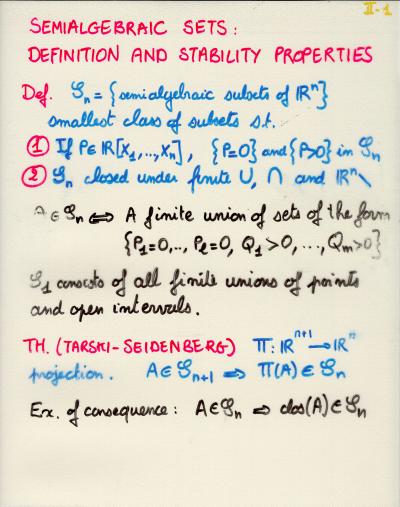 II-1
SEMIALGEBRAIC SETS:
DEFINITION AND STABILITY PROPERTIES
Def. 𝒮n = {semialgebraic subsets of ℝⁿ}
smallest class of subsets s.t.
① If P∈ℝ[X₁,...,Xn], {P=0} and {P>0} in 𝒮n
② 𝒮n closed under finite ∪, ∩ and ℝⁿ\
A∈𝒮n ⇔ A finite union of sets of the form
{P₁=0,.., Pℓ=0, Q₁>0, ..., Qm>0}
𝒮₁ consists of all finite unions of points
and open intervals.
TH. (TARSKI-SEIDENBERG) Π: ℝⁿ⁺¹ → ℝⁿ
projection. A∈𝒮n+1 ⇒ Π(A)∈𝒮n
Ex. of consequence: A∈𝒮n ⇒ clos(A)∈𝒮n